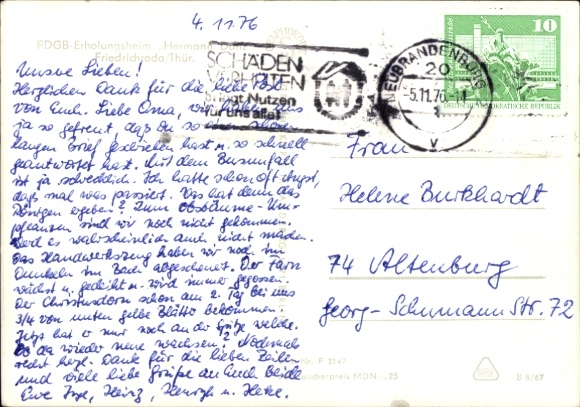 4.11.76
FDGB-Erholungsheim „Hermann Danz"
Friedrichroda/Thür.
Unsre Lieben!
Herzlichen Dank für die liebe Post
von Euch. Liebe Oma, wir haben uns
ja so gefreut, daß Du so einen schönen
langen Brief geschrieben hast u. so schnell
geantwortet hast. Mit dem Busunfall
ist ja schrecklich. Ich hatte schon oft Angst,
daß mal was passiert. Was hat denn das
Röntgen ergeben? Zum Obstbäume-Um-
pflanzen sind wir noch nicht gekommen.
Werd es wahrscheinlich auch nicht machen.
Das Handwerkszeug haben wir noch im
Dunkeln im Bach abgescheuert. Der Farn
wächst u. gedeiht u. wird immer gegossen.
Der Christusdorn schon am 2. Tag bei uns
3/4 von unten gelbe Blätter bekommen.
Jetzt hat er nur noch an der Spitze welche.
Ob da wieder neue wachsen? Nochmals
recht herzl. Dank für die lieben Zeilen
und viele liebe Grüße an Euch Beide
Eure Inge, Heinz, u. Heike.
SCHÄDEN
VERHÜTEN
bringt Nutzen
für uns alle!
NEUBRANDENBURG
20
-5.11.76
v
10
DEUTSCHE DEMOKRATISCHE REPUBLIK
Frau
Helene Burkhardt
74 Altenburg
Georg-Schumann Str. 72
Nr. F 2147
Verbraucherpreis MDN -,25
B 8/67